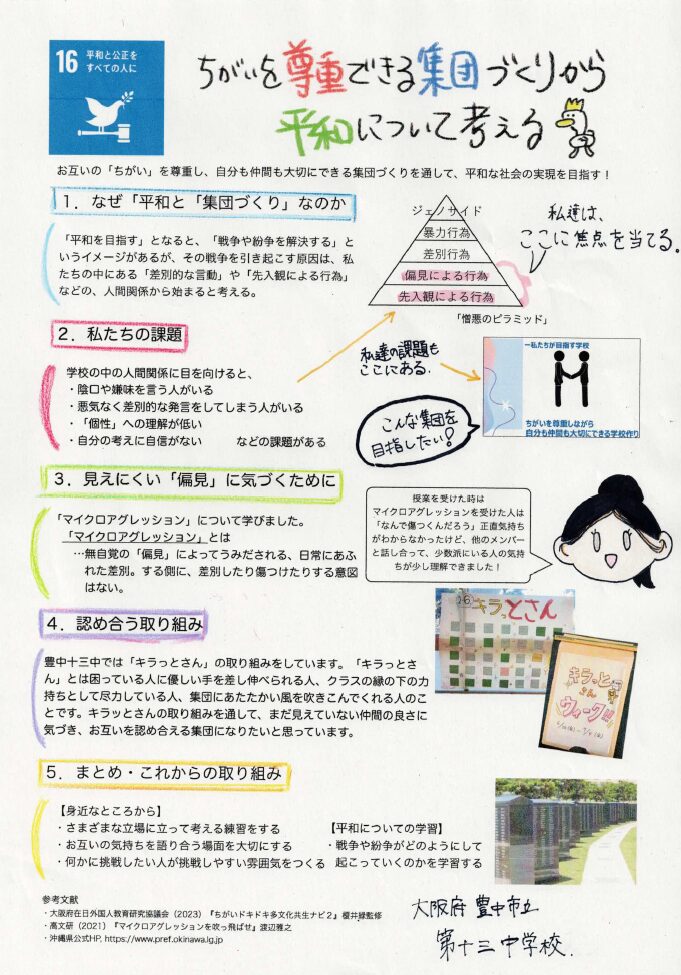 16 平和と公正を
すべての人に
ちがいを尊重できる集団づくりから
平和について考える
お互いの「ちがい」を尊重し、自分も仲間も大切にできる集団づくりを通して、平和な社会の実現を目指す！
1．なぜ「平和と「集団づくり」なのか
「平和を目指す」となると、「戦争や紛争を解決する」と
いうイメージがあるが、その戦争を引き起こす原因は、私
たちの中にある「差別的な言動」や「先入観による行為」
などの、人間関係から始まると考える。
ジェノサイド
暴力行為
差別行為
偏見による行為
先入観による行為
「憎悪のピラミッド」
私達は、
ここに焦点を当てる。
2．私たちの課題
学校の中の人間関係に目を向けると、
・陰口や嫌味を言う人がいる
・悪気なく差別的な発言をしてしまう人がいる
・「個性」への理解が低い
・自分の考えに自信がない　　などの課題がある
私達の課題も
ここにある.
こんな集団を
目指したい!
―私たちが目指す学校
ちがいを尊重しながら
自分も仲間も大切にできる学校作り
3．見えにくい「偏見」に気づくために
「マイクロアグレッション」について学びました。
「マイクロアグレッション」とは
…無自覚の「偏見」によってうみだされる、日常にあふ
れた差別。する側に、差別したり傷つけたりする意図
はない。
授業を受けた時は
マイクロアグレッションを受けた人は
「なんで傷つくんだろう」正直気持ち
がわからなかったけど、他のメンバー
と話し合って、少数派にいる人の気持
ちが少し理解できました！
4．認め合う取り組み
豊中十三中では「キラっとさん」の取り組みをしています。「キラっとさ
ん」とは困っている人に優しい手を差し伸べられる人、クラスの縁の下の力
持ちとして尽力している人、集団にあたたかい風を吹きこんでくれる人のこ
とです。キラッとさんの取り組みを通して、まだ見えていない仲間の良さに
気づき、お互いを認め合える集団になりたいと思っています。
キラっとさん
キラっと
さん
ウィーク!!
5．まとめ・これからの取り組み
【身近なところから】
・さまざまな立場に立って考える練習をする
・お互いの気持ちを語り合う場面を大切にする
・何かに挑戦したい人が挑戦しやすい雰囲気をつくる
【平和についての学習】
・戦争や紛争がどのようにして
起こっていくのかを学習する
参考文献
・大阪府在日外国人教育研究協議会（2023）『ちがいドキドキ多文化共生ナビ2』榎井縁監修
・高文研（2021）『マイクロアグレッションを吹っ飛ばせ』渡辺雅之
・沖縄県公式HP, https://www.pref.okinawa.lg.jp
大阪府 豊中市立
第十三中学校.